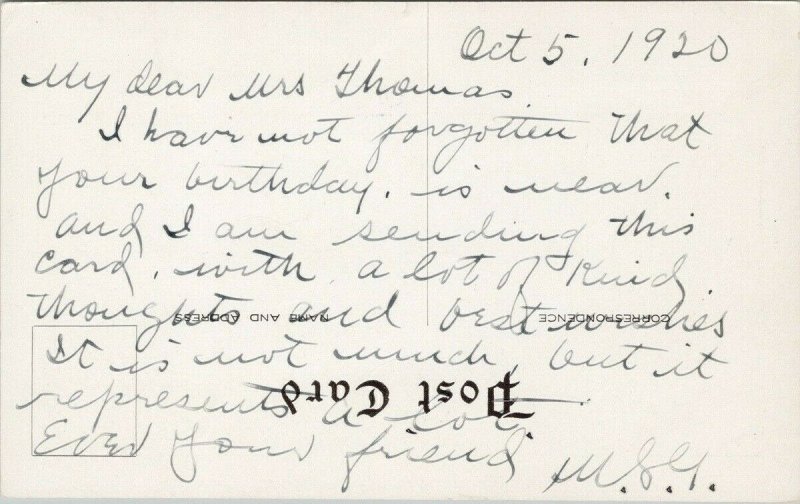 Oct 5, 1920
My dear Mrs Thomas.
I have not forgotten that
your birthday. is near.
and I am sending this
card. with a lot of kind
thoughts and best wishes
NAME AND ADDRESS
CORRESPONDENCE
It is not much, but it
Post Card
represents a lot.
Ever your friend